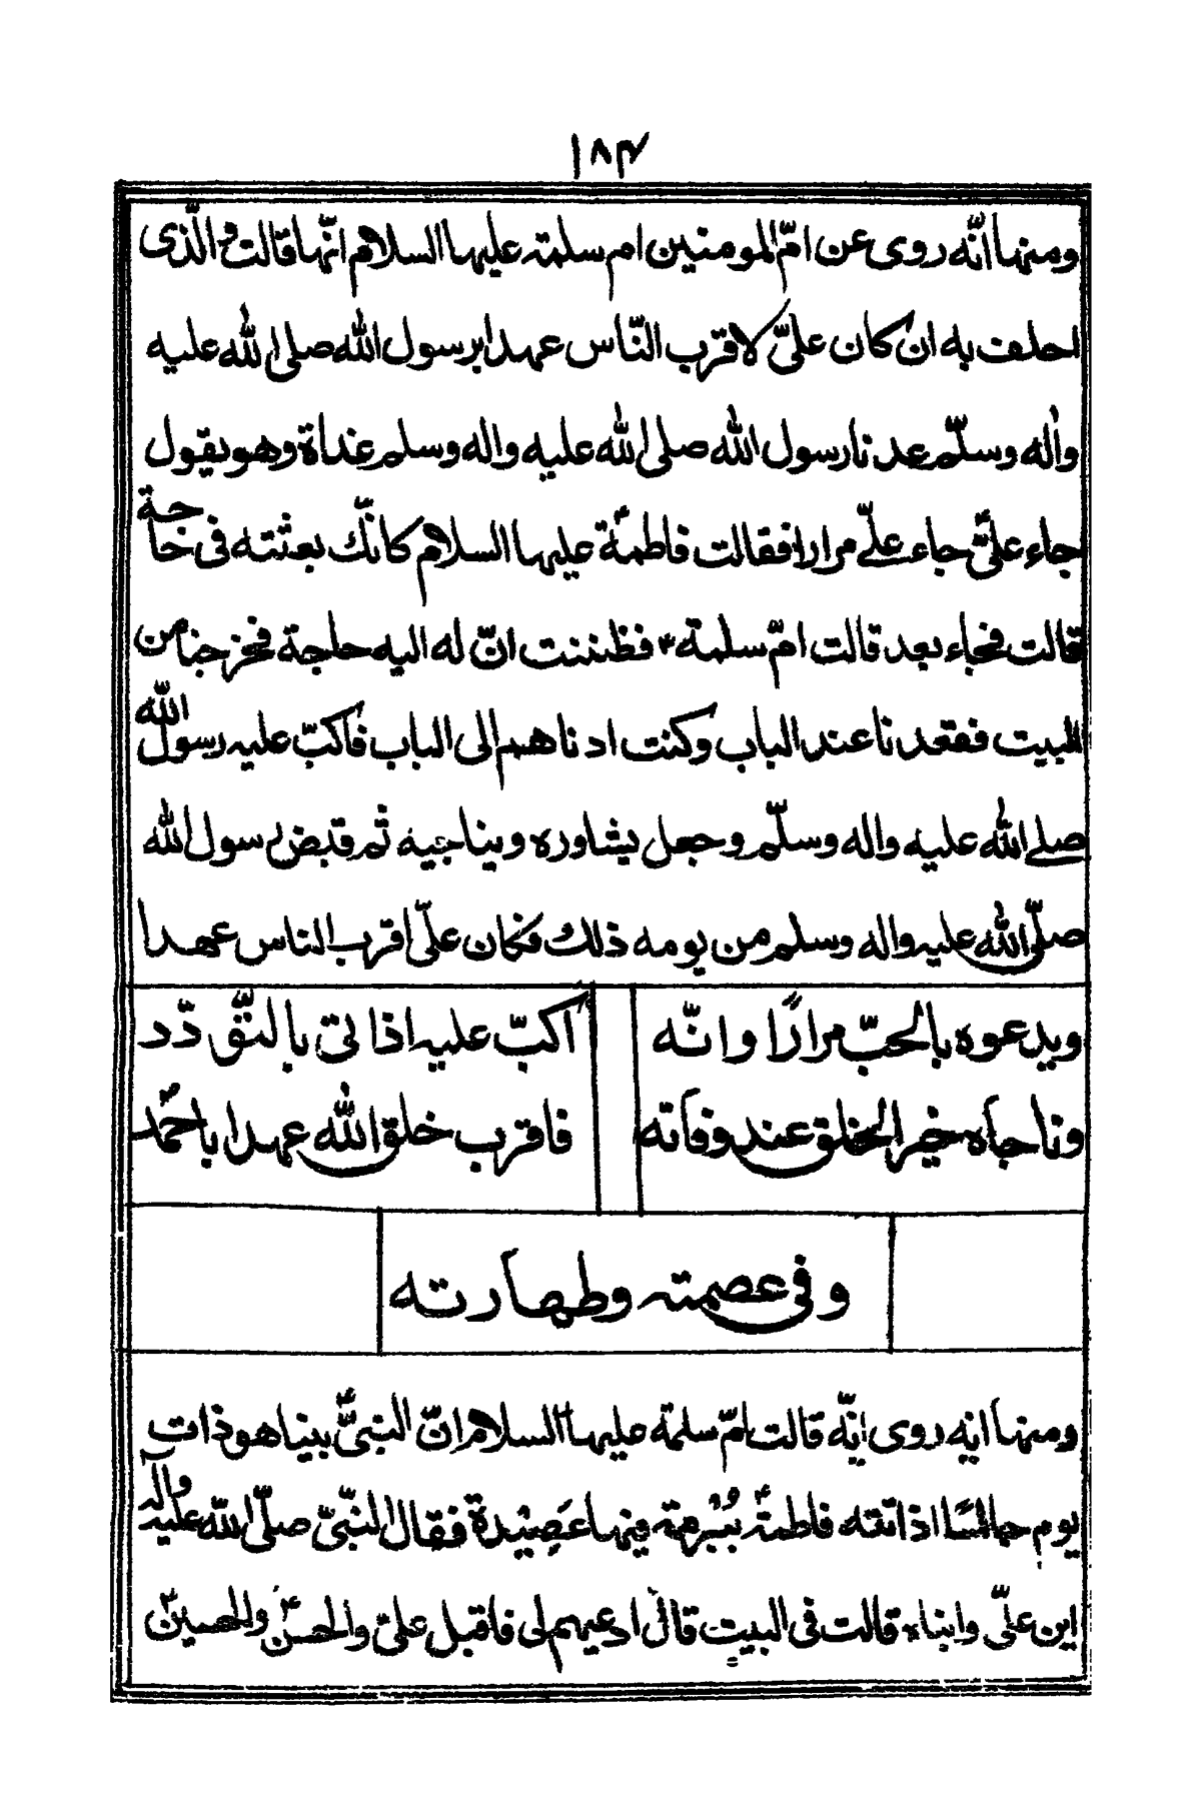 ١٨٣
ومنها انّه روى عن امّ المومنين ام سلمته عليها السلام انّها قالت والّذى
احلف به ان كان علىّ لاقرب النّاس عهدا برسول الله صلى الله عليه
واله وسلّم عدنا رسول الله صلى الله عليه واله وسلم غداة وهو يقول
جاء علىّ جاء علىّ مرارا فقالت فاطمة عليها السلام كانّك بعثته فى حاجة
قالت فجاء بعد قالت امّ سلمة فظننت انّ له اليه حاجة فخرجنا من
البيت فقعدنا عند الباب وكنت ادناهم الى الباب فاكبّ عليه رسول الله
صلى الله عليه واله وسلّم وجعل يشاوره ويناجيه ثم قبض رسول الله
صلّى الله عليه واله وسلم من يومه ذلك فكان علىّ اقرب الناس عهدا
ويدعوه بالحبّ مرارًا وانّه اكبّ عليه اذا تى بالتّودّد
وناجاه خير الخلق عند وفاته فاقرب خلق الله عهدا باحمد
وفى عصمته وطهارته
ومنها انه روى انّه قالت امّ سلمة عليها السلام انّ النبىّ بينا هو ذات
يوم جالسًا اذ اتته فاطمة ببُرمة فيها عَصِيْدة فقال النّبىّ صلّى الله عليه واله
اين علىّ وابناه قالت فى البيت قال ادعيهم لى فاقبل علىّ والحسن والحسين